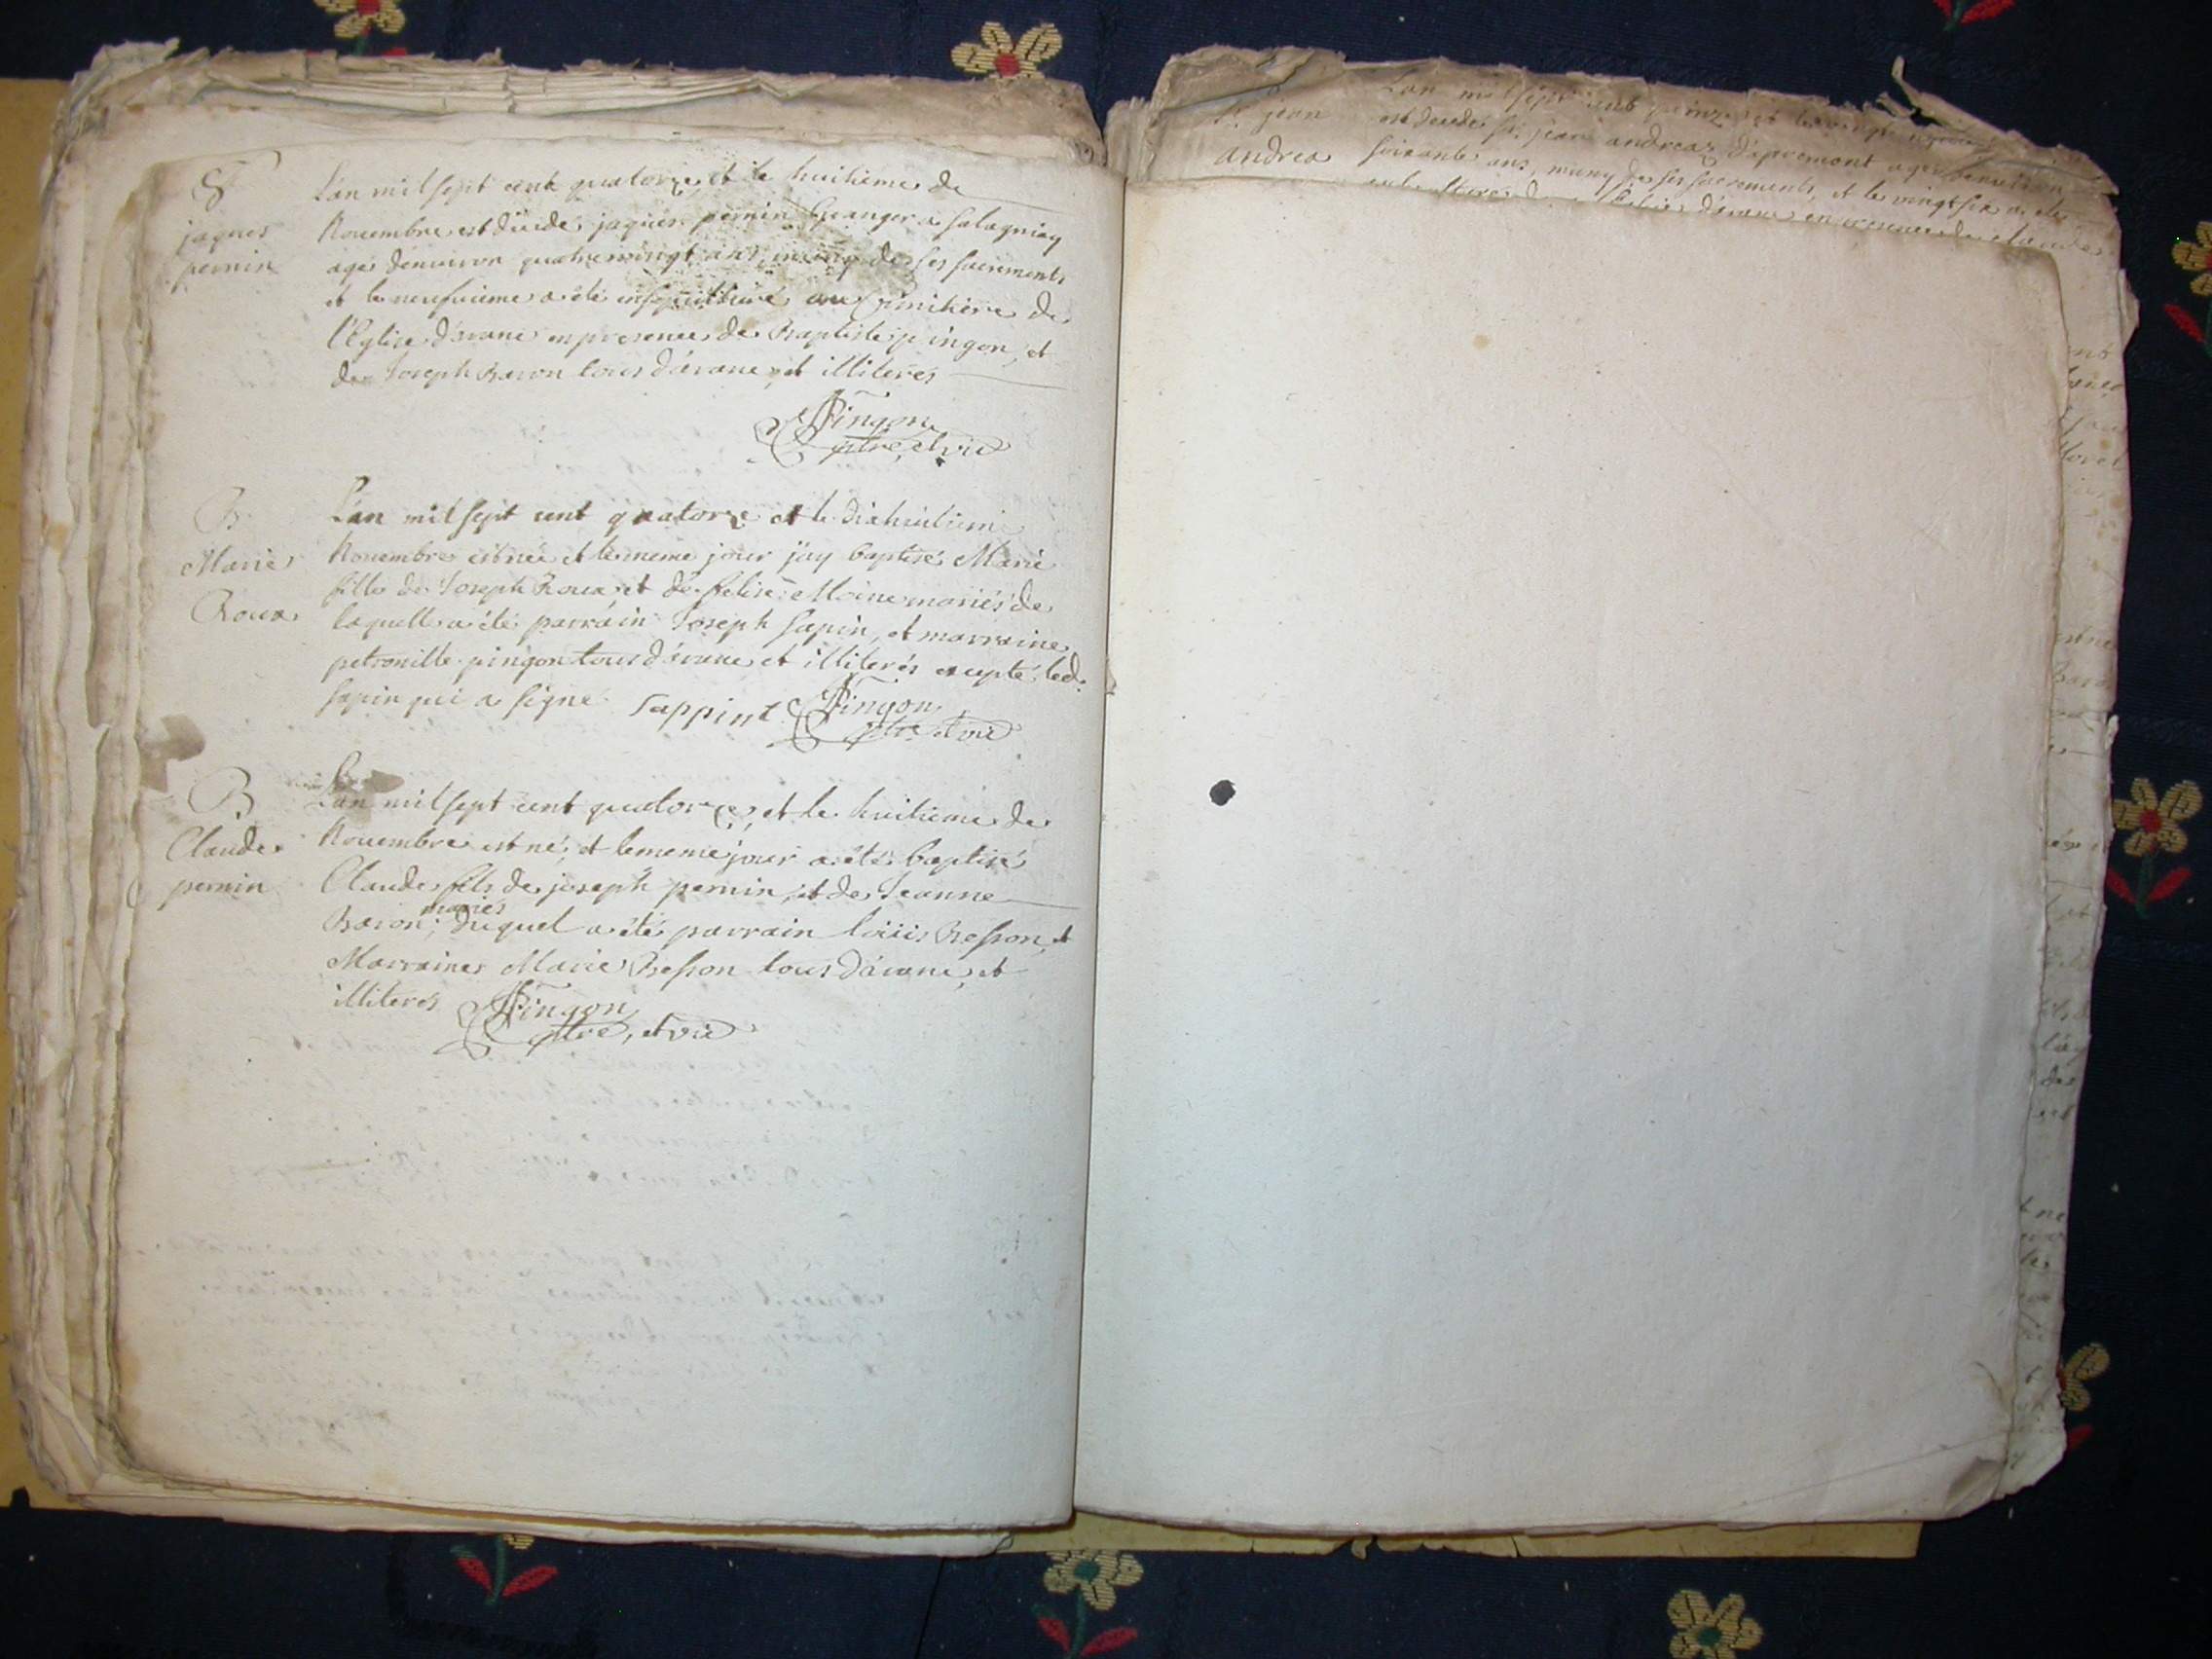 S
jaques
pernin
L'an mil sept cent quatorze, et le huitieme de
Novembre est décédé jaques pernin
agé d'environ quatre vingt ans, muny de ses sacrements
et le neufvieme a été insepulturé au cimitiere de
l'Eglise d'avane en presence de Baptiste pingon, et
de Joseph Baron tous d'avane, et illiterés
Pingon
ptre, et vic
B
Marie
Roux
L'an mil sept cent quatorze et le dixhuitieme
Novembre est née et le meme jour j'ay baptisé Marie
fille de Joseph Roux et de felise Moine mariés de
laquelle a été parrain Joseph sapin, et marraine
petronille pingon tous d'avane et illiterés excepté led.
sapin qui a signé Sappint Pingon
ptre et vic
B
Claude
pernin
L'an mil sept cent quatorze, et le huitieme de
Novembre est né, et le meme jour a été baptisé
Claude fils de joseph pernin, et de Jeanne
mariés
Baron; duquel a été parrain loüis Besson, et
Marraine Marie Besson tous d'avane, et
illiterés Pingon
ptre, et vic
Sr. jean
andrea
L'an mil sept cent quinze et le vingt
est decedé Sr. jean andreaz d'apremont agé d'environ
soixante ans, muny de ses sacrements, et le vingt six a eté
d'avane en presence de claude